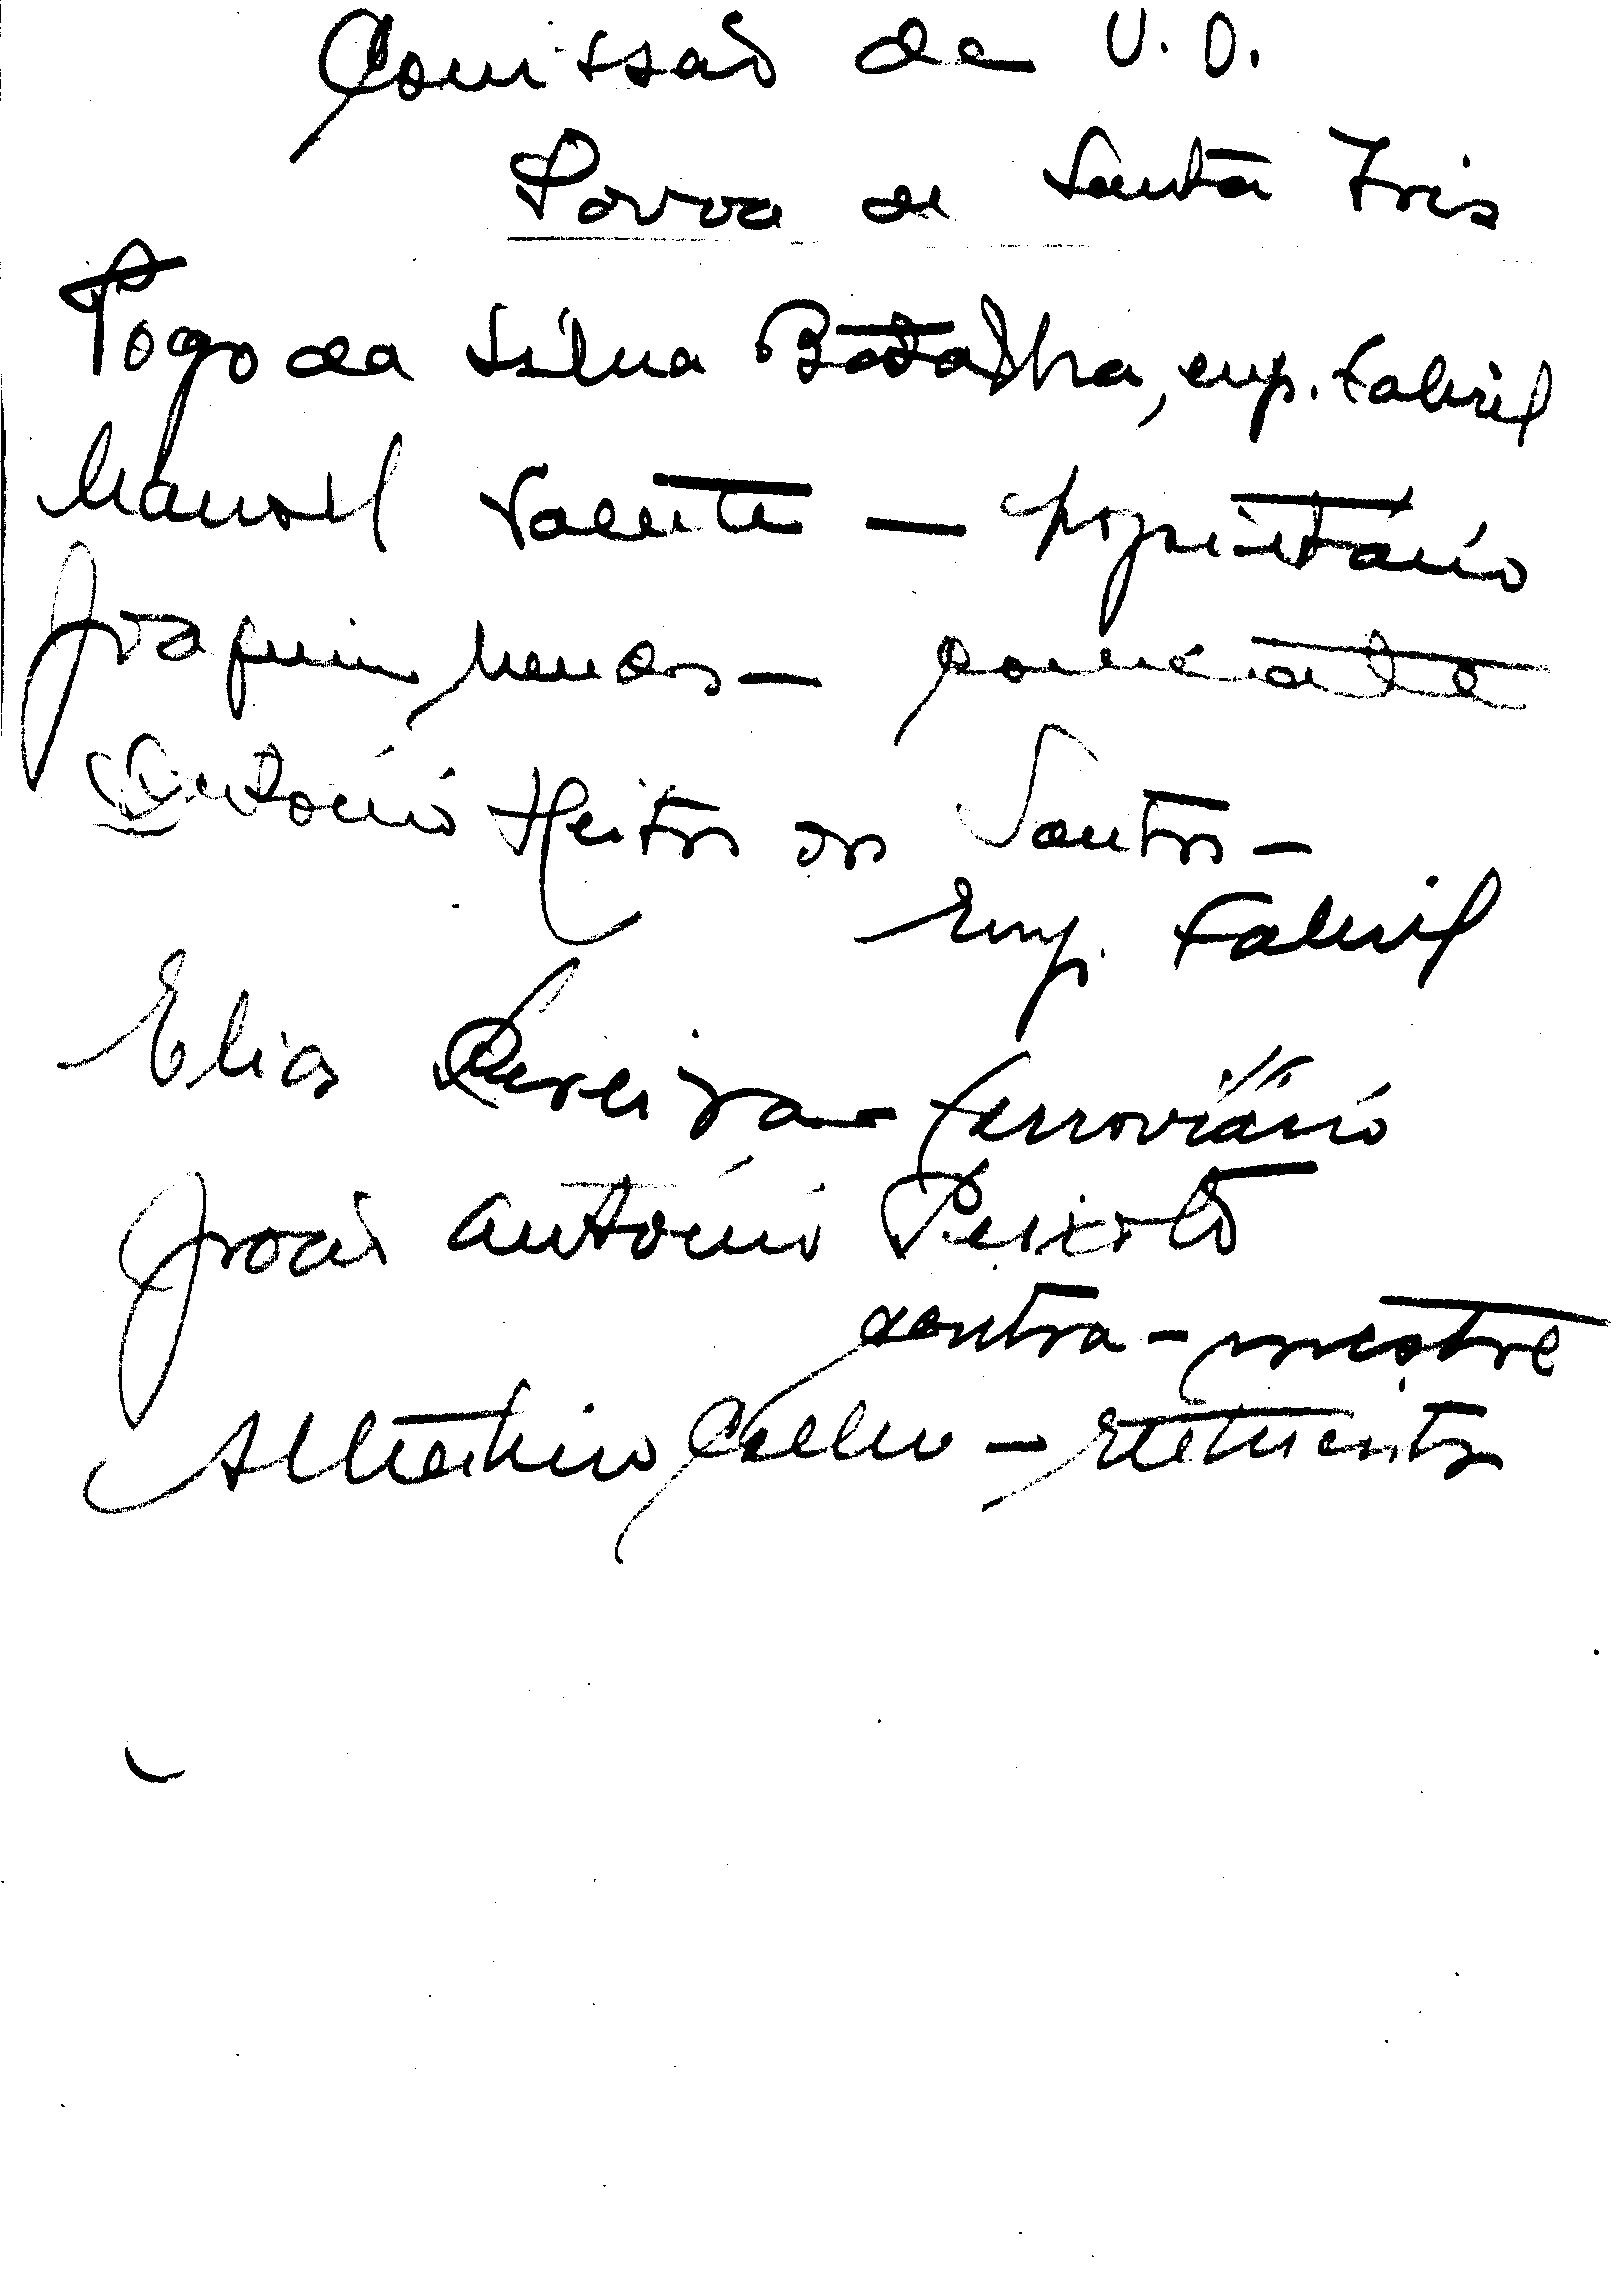 Comissão de U. D.
Povoa de Santa Iria
da Silva Batalha, emp. Fabril
Manoel Valente — proprietário
Joaquim Mendes — comerciante
António Heitor dos Santos —
Emp. Fabril
Elias Pereira — ferroviário
João António Peixoto
contra-mestre
Albertino Coelho — eletricista